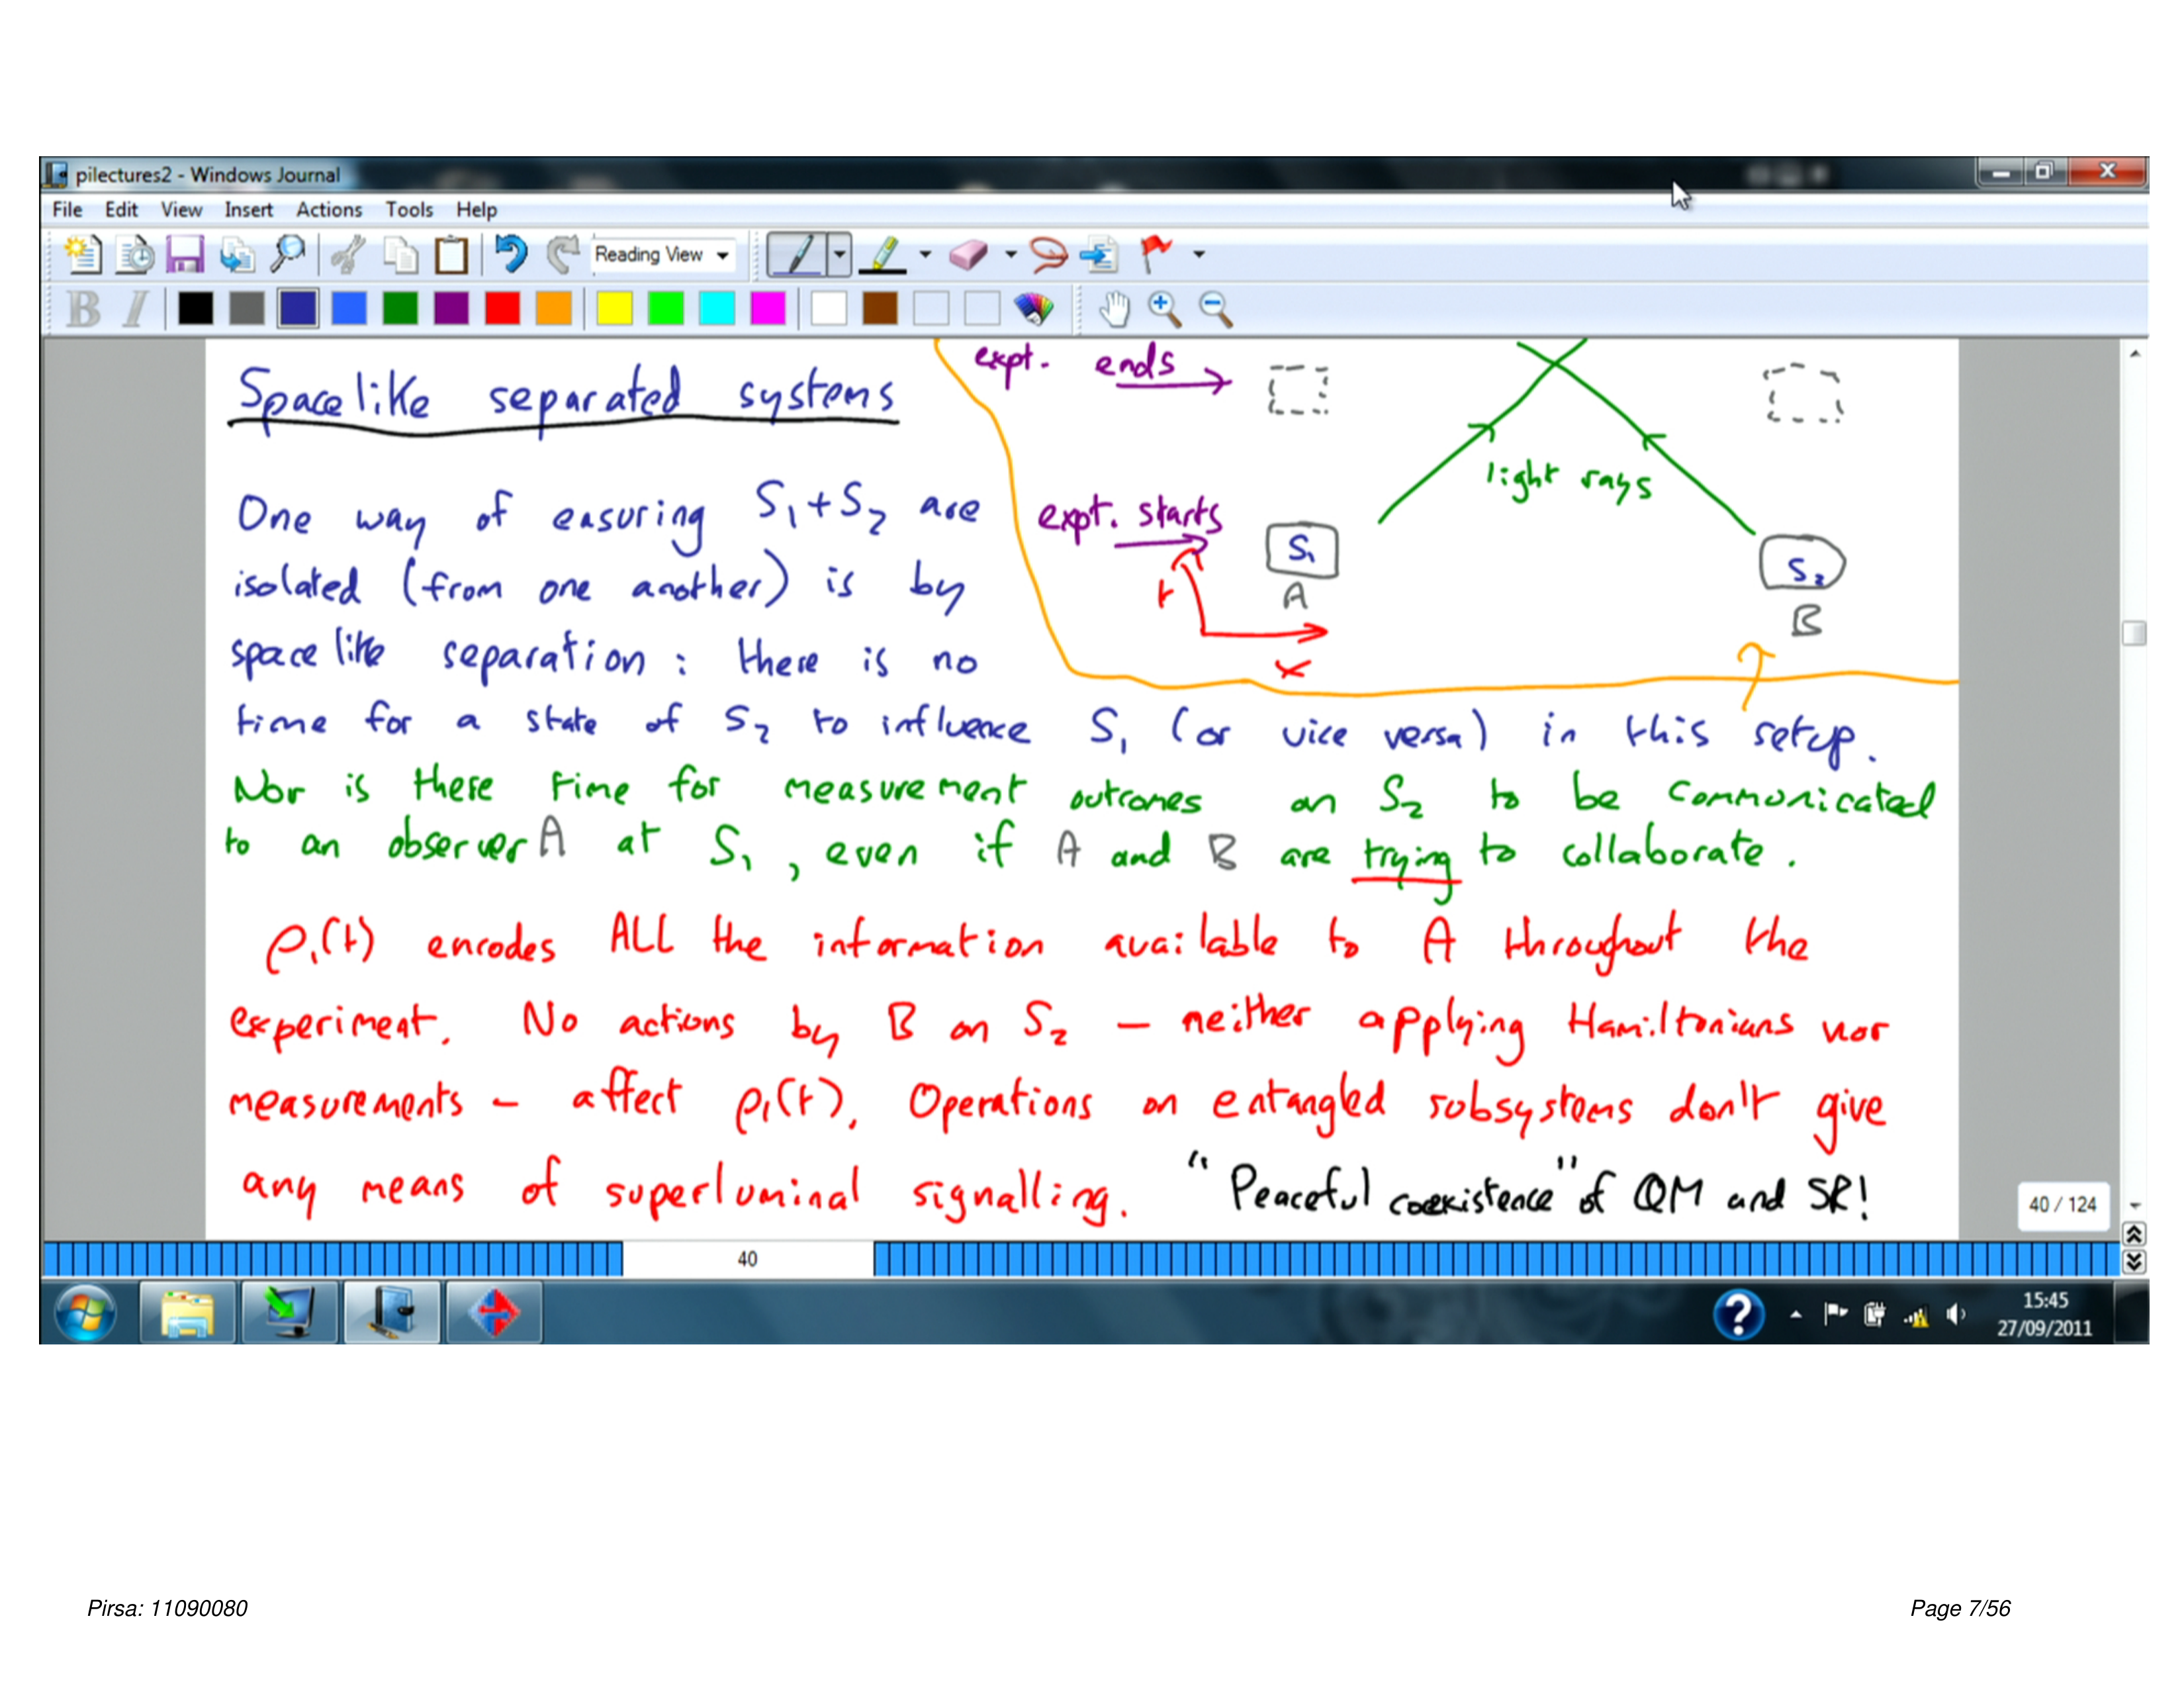 pilectures2 - Windows Journal
File Edit View Insert Actions Tools Help
Reading View
B I
expt. ends
Spacelike separated systems
light rays
One way of ensuring S₁+S₂ are
expt. starts
S₁
S₂
isolated (from one another) is by
t
A
B
spacelike separation : there is no
x
time for a state of S₂ to influence S₁ (or vice versa) in this setup.
Nor is there time for measurement outcomes on S₂ to be communicated
to an observer A at S₁, even if A and B are trying to collaborate.
ρ₁(t) encodes ALL the information available to A throughout the
experiment. No actions by B on S₂ – neither applying Hamiltonians nor
measurements – affect ρ₁(t). Operations on entangled subsystems don't give
any means of superluminal signalling. "Peaceful coexistence" of QM and SR!
40 / 124
40
15:45
27/09/2011
Pirsa: 11090080
Page 7/56